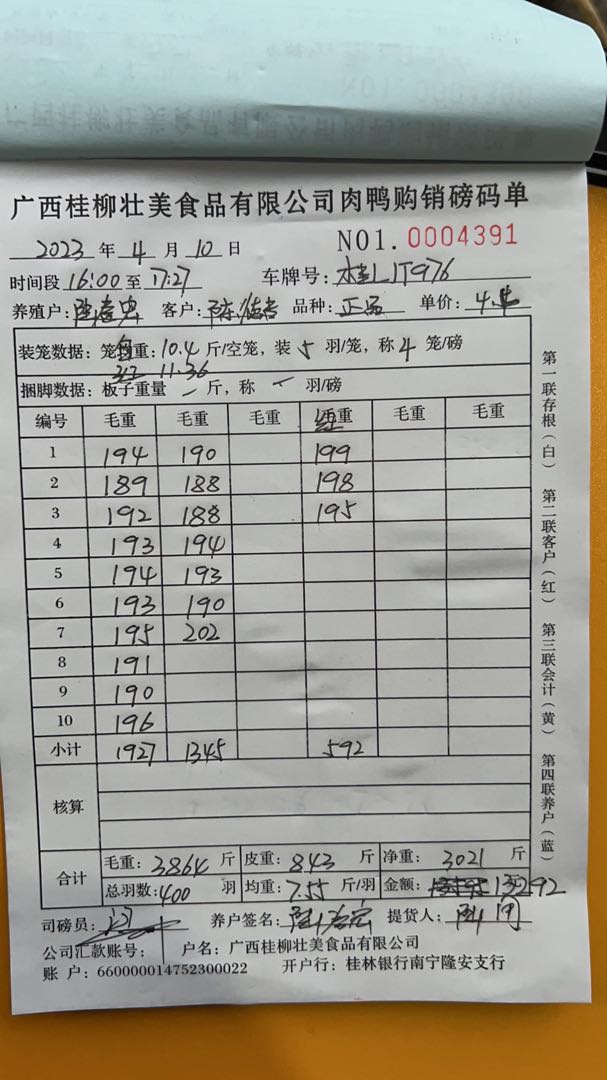 广西桂柳壮美食品有限公司肉鸭购销磅码单
2023 年 4 月 10 日 NO1. 0004391
时间段 16:00 至 17:27 车牌号: 桂L1T976
养殖户: 客户: 品种: 正品 单价: 4.4
装笼数据: 笼重: 10.4 斤/空笼, 装 5 羽/笼, 称 4 笼/磅
11.36
捆脚数据: 板子重量 一 斤, 称 一 羽/磅
编号 毛重 毛重 毛重 重 毛重 毛重
1 194 190 199
2 189 188 198
3 192 188 195
4 193 194
5 194 193
6 193 190
7 195 202
8 191
9 190
10 196
小计 1927 1345 592
核算
合计 毛重: 3864 斤 皮重: 843 斤 净重: 3021 斤
总羽数: 400 羽 均重: 7.55 斤/羽 金额: 13292
司磅员: 养户签名: 提货人:
公司汇款账号: 户名: 广西桂柳壮美食品有限公司
账 户: 660000014752300022 开户行: 桂林银行南宁隆安支行
第一联存根(白) 第二联客户(红) 第三联会计(黄) 第四联养户(蓝)